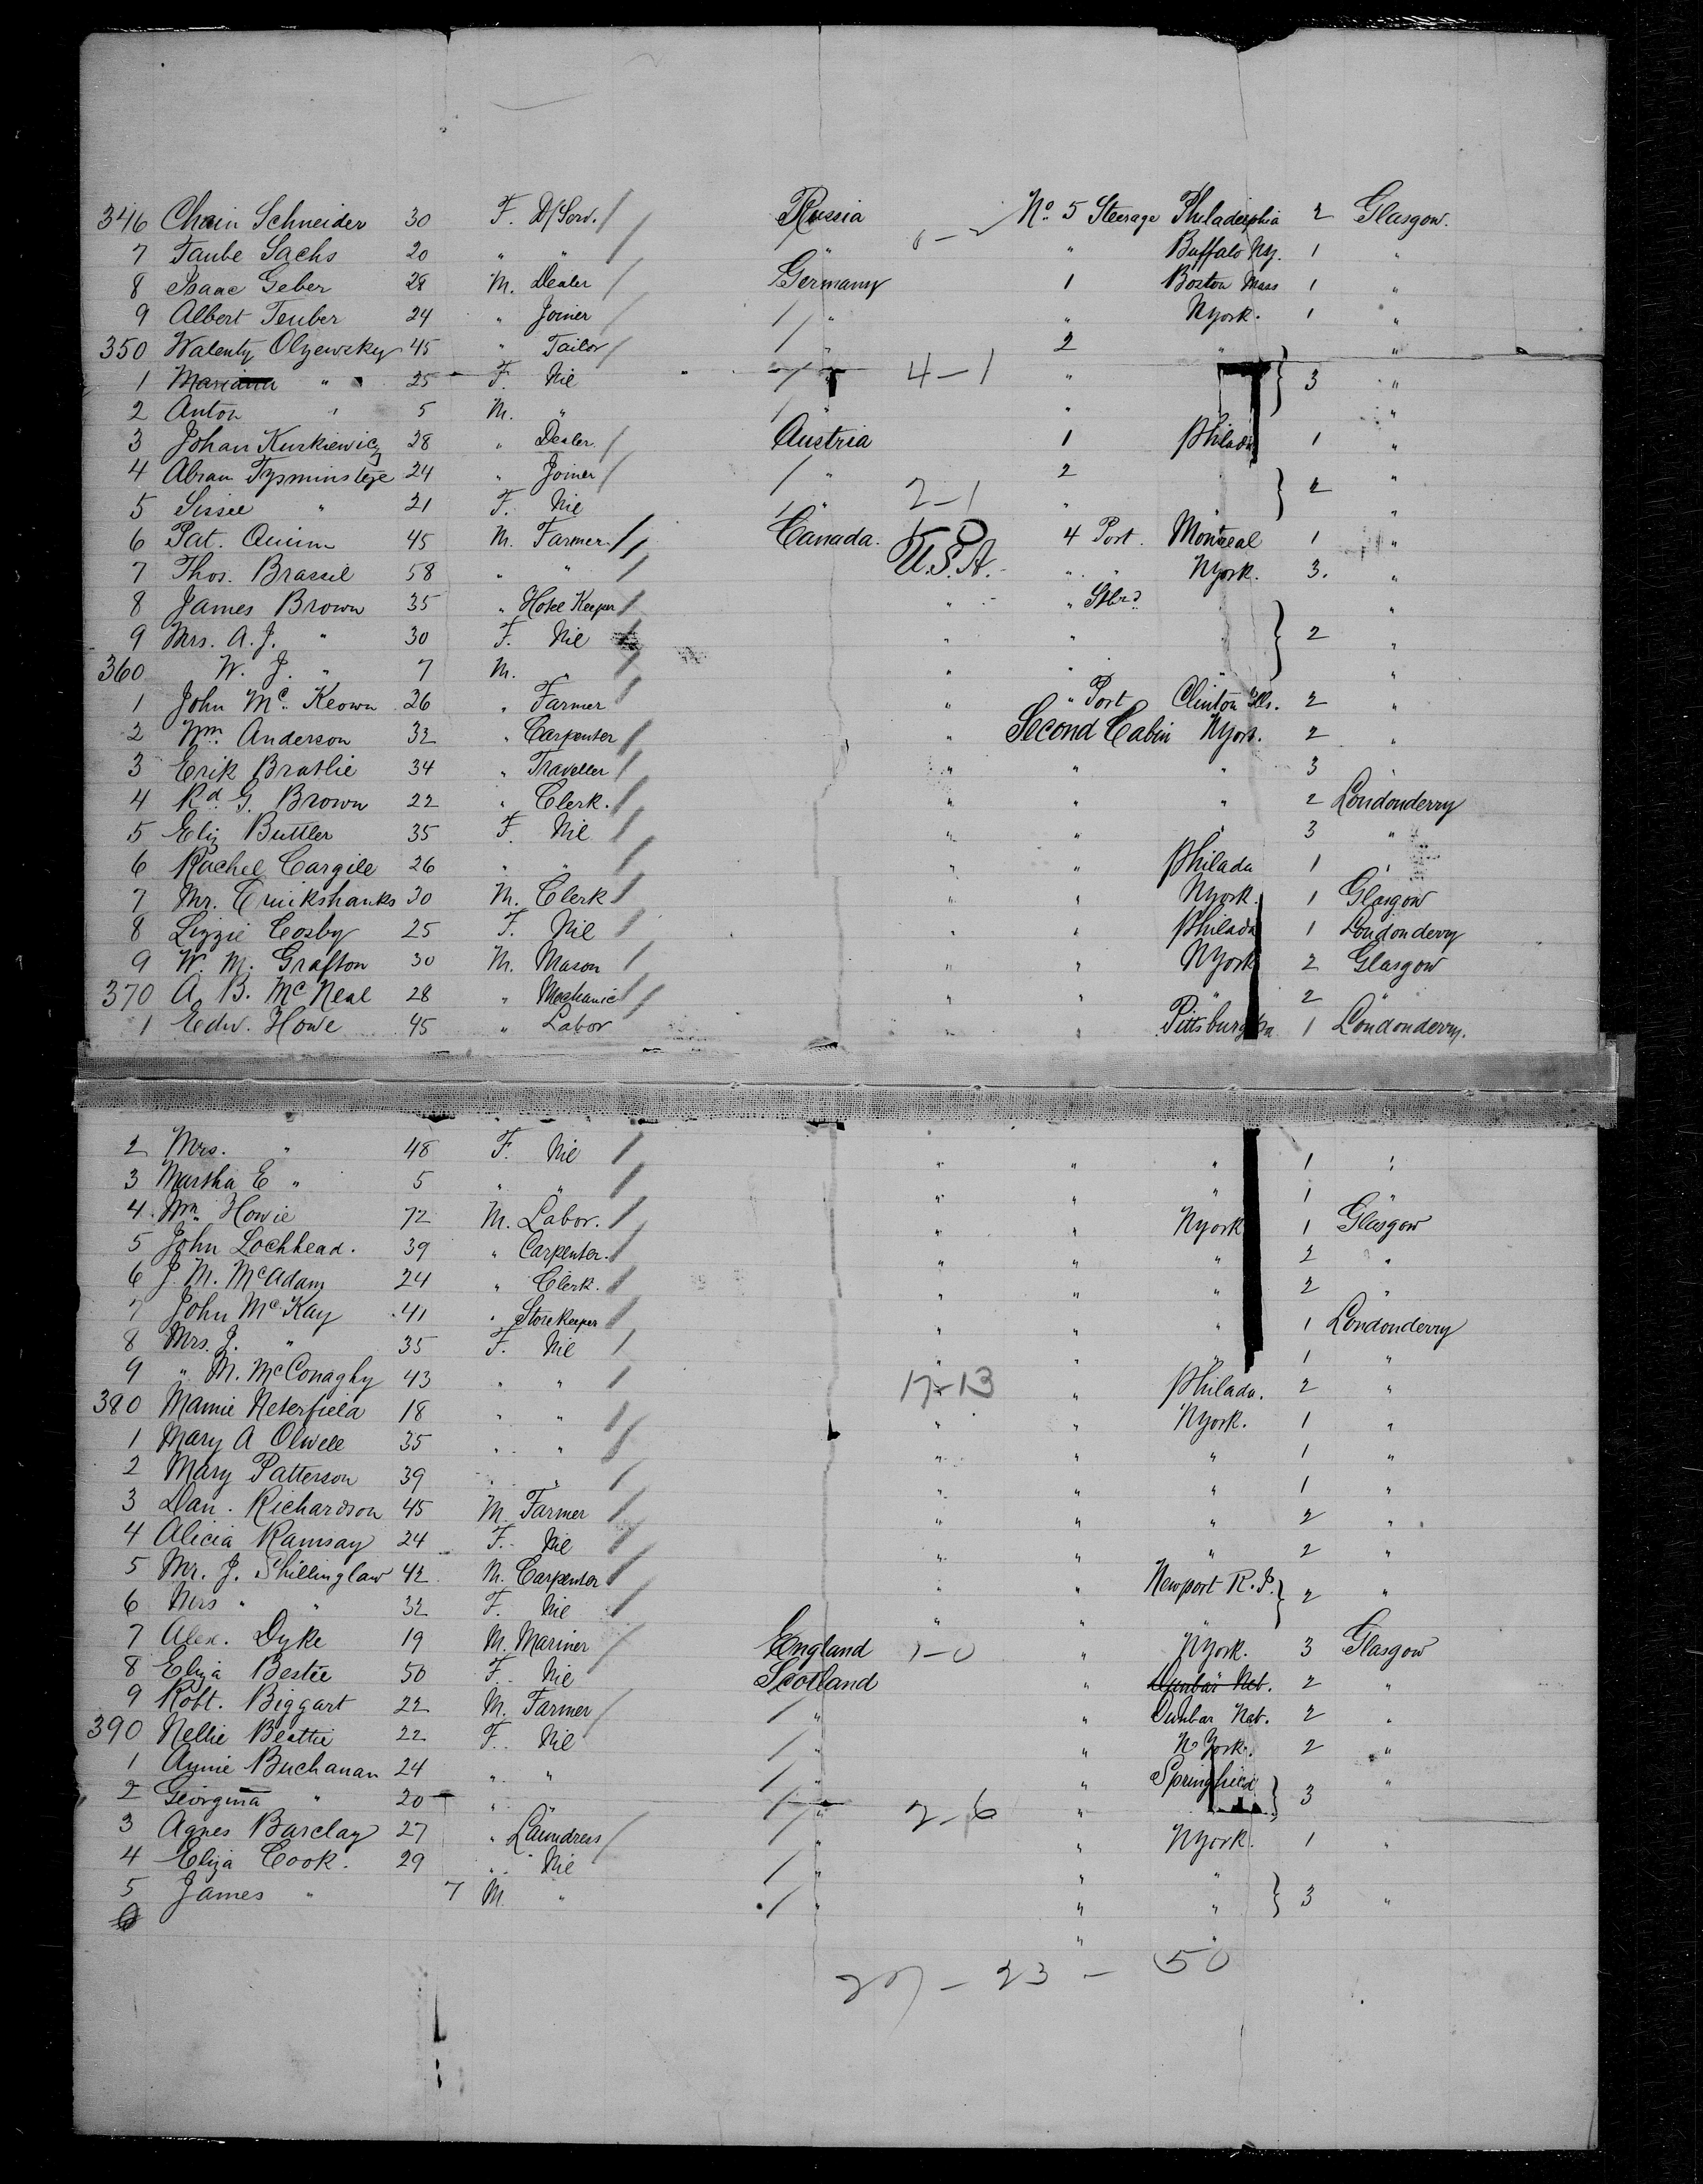 346 Chain Schneider 30 F. D/Serv. Russia No. 5 Steerage Philadelphia 2 Glasgow.
7 Taube Sachs 20 " " " 0-2 " Buffalo Ny. 1 "
8 Isaac Geber 28 M. Dealer Germany 1 Boston Mass 1 "
9 Albert Teuber 24 " Joiner " " NYork. 1 "
350 Walenty Olyewsky 45 " Tailor " 2 " "
1 Mariana " 25 F. Nil " 4-1 " 3 "
2 Anton " 5 M. " " "
3 Johan Kurkiewicz 28 " Dealer Austria 1 Philada 1 "
4 Abram Tysminsteje 24 " Joiner " 2 2 "
5 Sissel " 21 F. Nil " 2-1 " "
6 Pat. Quinn 45 M. Farmer Canada. 4 Port. Montreal 1 "
7 Thos. Brassil 58 " " U.S.A. " " NYork. 3. "
8 James Brown 35 " Hotel Keeper " " Stbrd "
9 Mrs. A. J. " 30 F. Nil " " " 2 "
360 W. J. " 7 M. " " " " "
1 John Mc. Keown 26 " Farmer " " Port Clinton Ills. 2 "
2 Wm. Anderson 32 " Carpenter " Second Cabin NYork. 2 "
3 Erik Bratlie 34 " Traveller " " " 3 "
4 Rd. G. Brown 22 " Clerk. " " " 2 Londonderry
5 Eliz Buttler 35 F. Nil " " " 3 "
6 Rachel Cargill 26 " " " " Philada 1 "
7 Mr. Cruikshanks 30 M. Clerk " " NYork. 1 Glasgow
8 Lizzie Cosby 25 F. Nil " " Philada 1 Londonderry
9 W. M. Grafton 30 M. Mason " " NYork 2 Glasgow
370 A. B. McNeal 28 " Mechanic " " " 2 "
1 Edw. Howe 45 " Labor " " Pittsburg Pa 1 Londonderry.
2 Mrs. " 48 F. Nil " " " 1 "
3 Martha E " 5 " " " " " 1 "
4 Wm. Howie 72 M. Labor. " " NYork 1 Glasgow
5 John Lochhead. 39 " Carpenter. " " " 2 "
6 J. M. McAdam 24 " Clerk. " " " 2 "
7 John McKay 41 " Storekeeper " " " 1 Londonderry
8 Mrs. J. " 35 F. Nil " " " 1 "
9 " M. McConaghy 43 " " 17-13 " Philada. 2 "
380 Mamie Neterfield 18 " " " " NYork. 1 "
1 Mary A Olwell 35 " " " " " 1 "
2 Mary Patterson 39 " " " " " 1 "
3 Dan. Richardson 45 M. Farmer " " " 2 "
4 Alicia Ramsay 24 F. Nil " " " 2 "
5 Mr. J. Shillinglaw 42 M. Carpenter " " Newport R.I. 2 "
6 Mrs " " 32 F. Nil " " "
7 Alex. Dyke 19 M. Mariner England 1-0 " NYork. 3 Glasgow
8 Eliza Bestie 50 F. Nil Scotland " Dunbar Neb. 2 "
9 Robt. Biggart 22 M. Farmer " " Dunbar Neb. 2 "
390 Nellie Beattie 22 F. Nil " " N. York. 2 "
1 Annie Buchanan 24 " " " " Springfield 3 "
2 Georgina " 20 " " " 2-6 "
3 Agnes Barclay 27 " Laundress " " NYork. 1 "
4 Eliza Cook. 29 " Nil " " "
5 James " 7 M. " " " " 3 "
6 " "
27 - 23 - 50